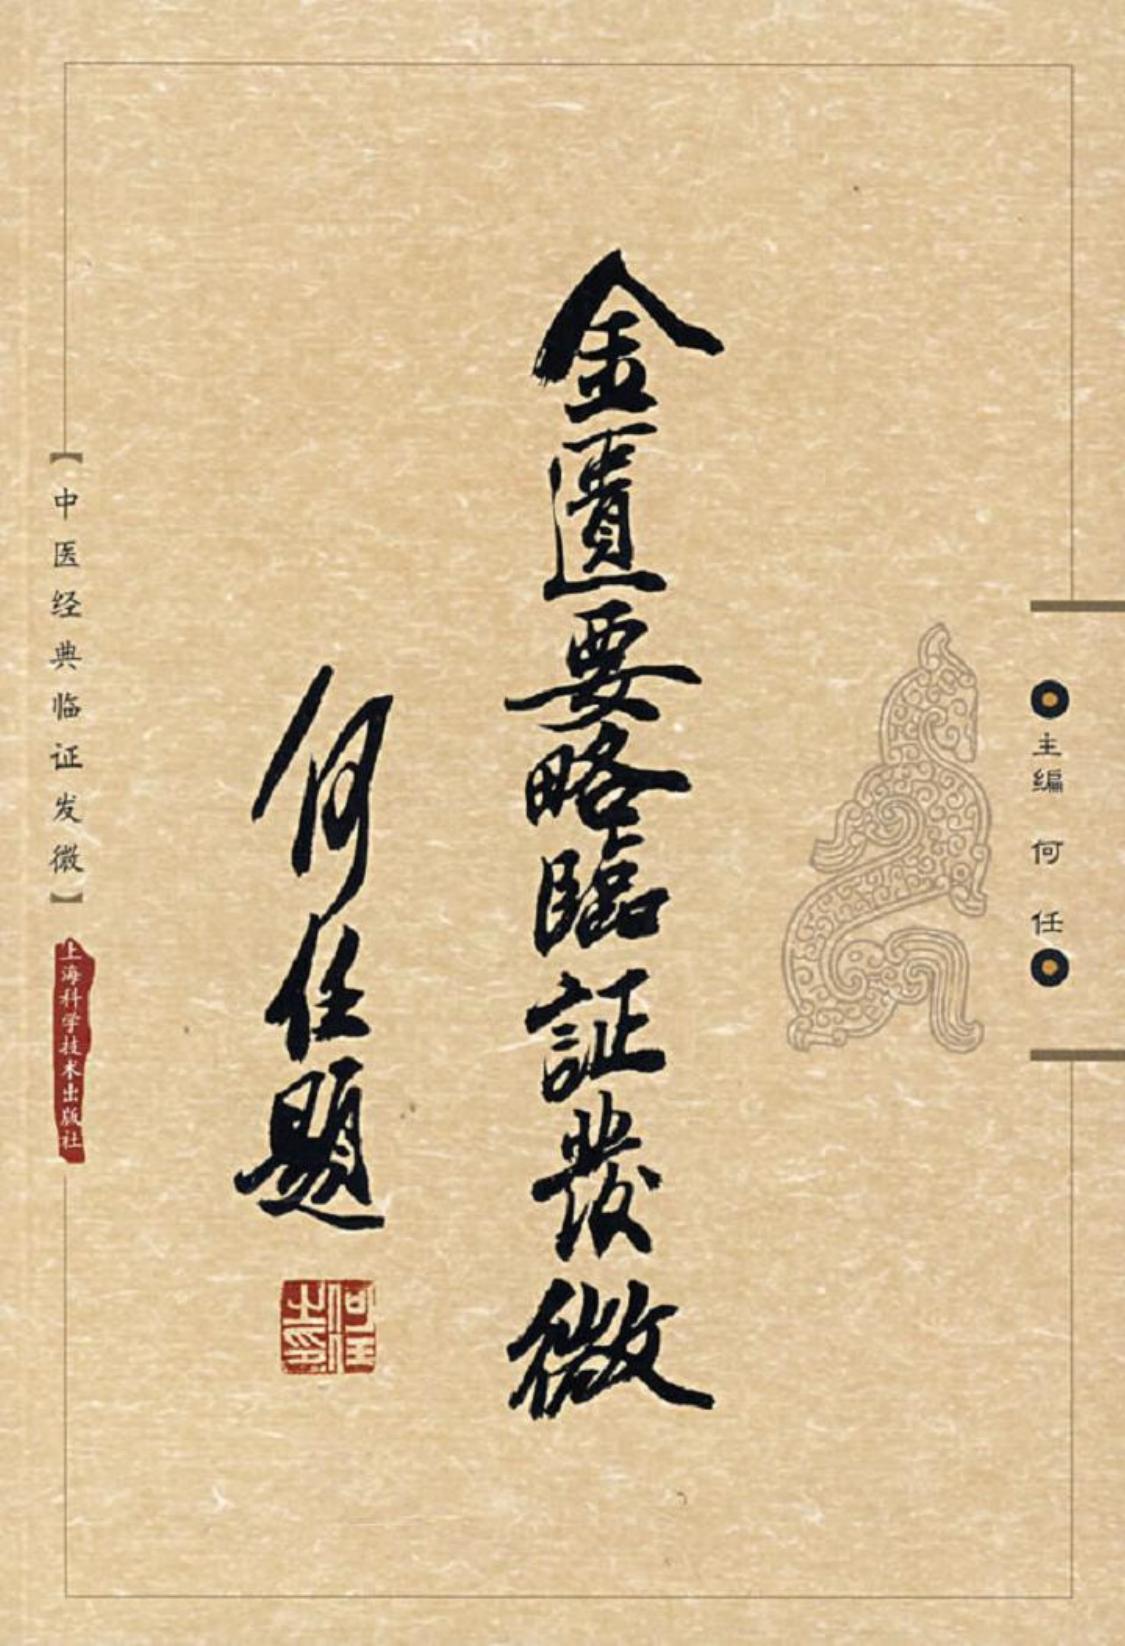 主编 何任
金匱要略臨証發微
何任題
何任之印
【中医经典临证发微】
上海科学技术出版社